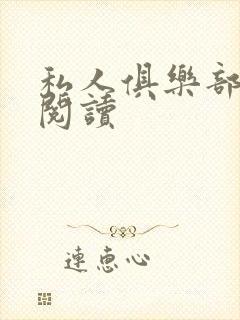 私人俱樂部
閱讀
連惠心